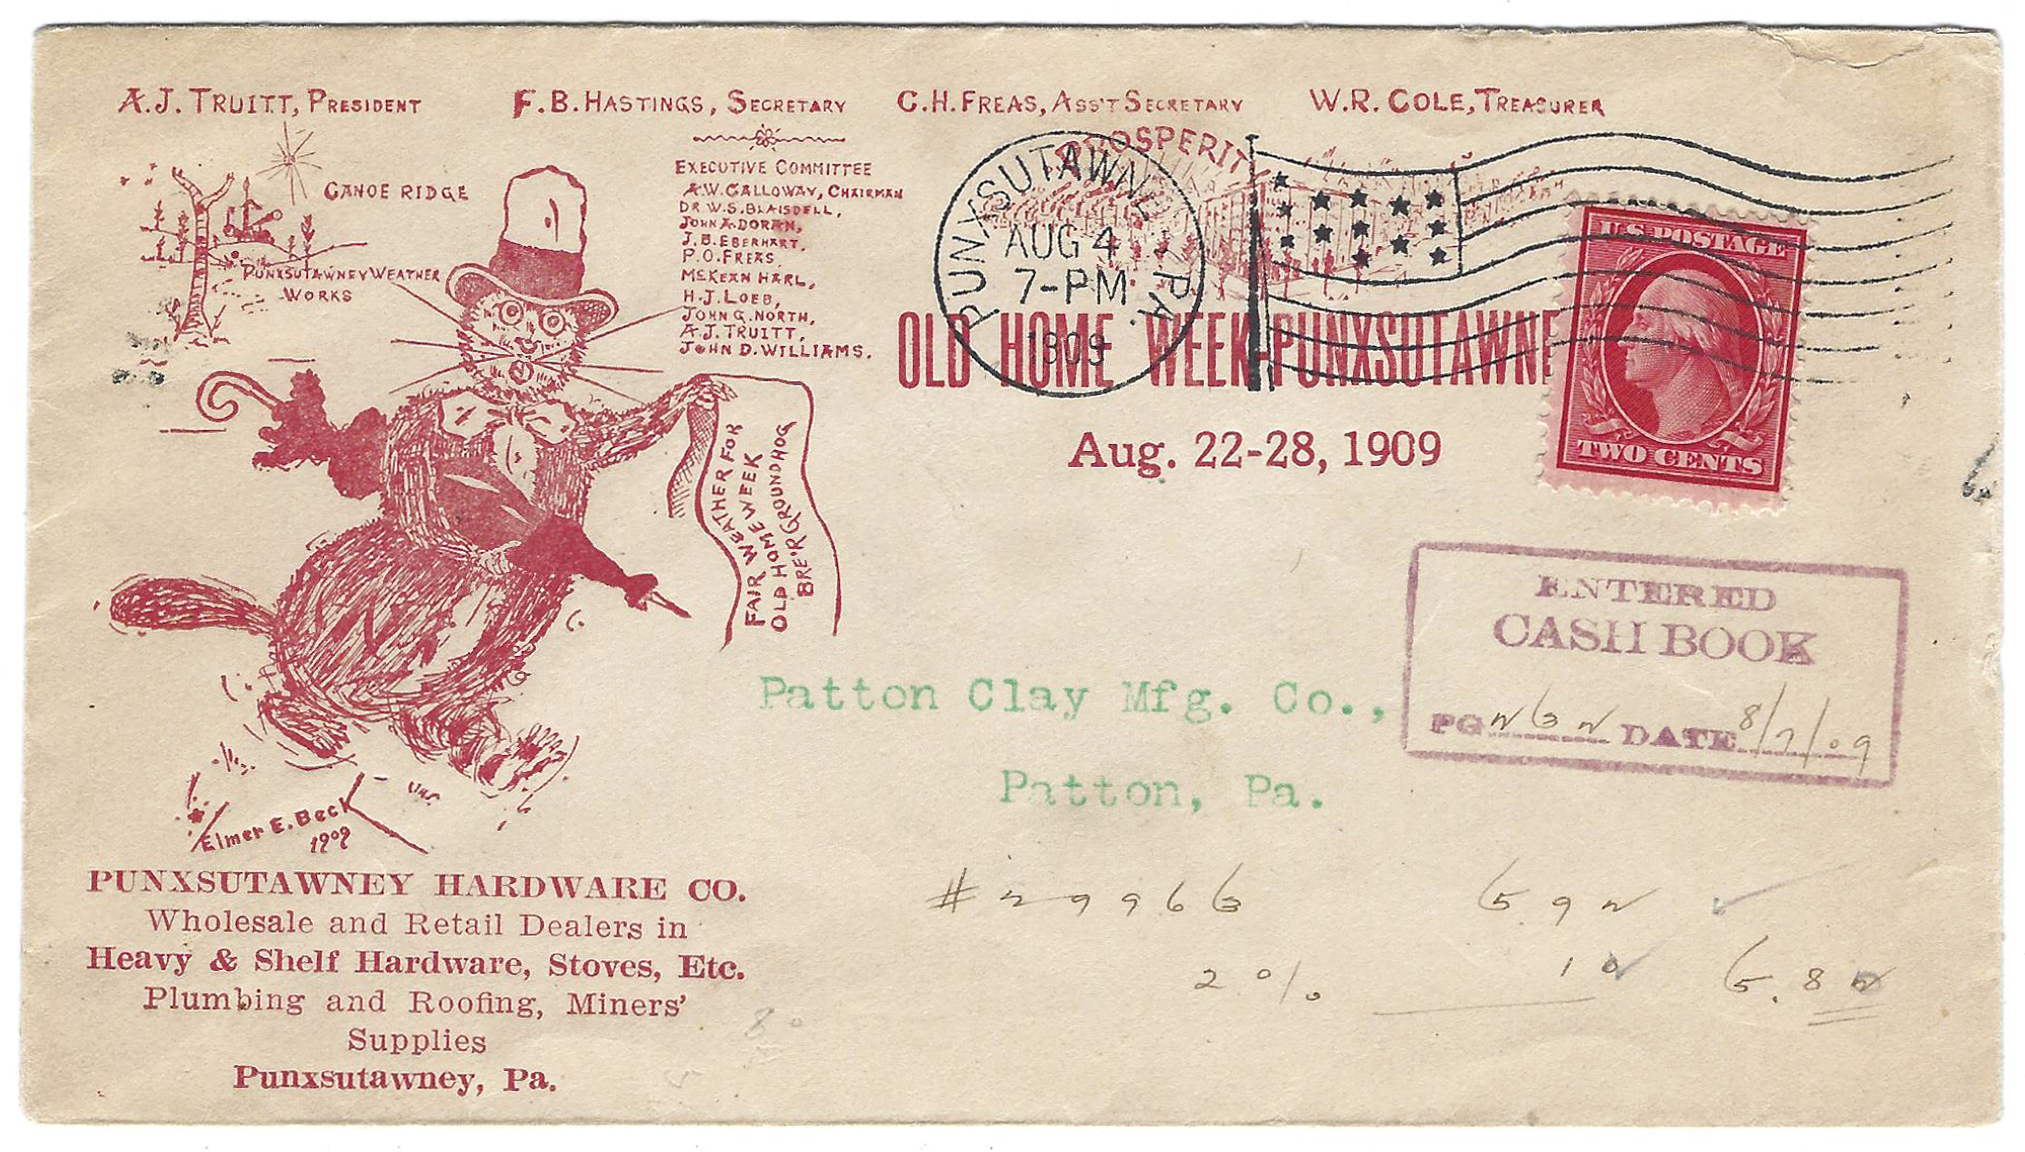 A.J. TRUITT, PRESIDENT
F.B. HASTINGS, SECRETARY
C.H. FREAS, ASS'T SECRETARY
W.R. COLE, TREASURER
CANOE RIDGE
PUNXSUTAWNEY WEATHER
WORKS
EXECUTIVE COMMITTEE
A.W. GALLOWAY, CHAIRMAN
DR W.S. BLAISDELL,
JOHN A. DORAN,
J.B. EBERHART,
P.O. FREAS,
MCKEAN HARL,
H.J. LOEB,
JOHN G. NORTH,
A.J. TRUITT,
JOHN D. WILLIAMS.
PROSPERIT
PUNXSUTAWNEY, PA.
AUG 4
7-PM
1909
OLD HOME WEEK-PUNXSUTAWNE
Aug. 22-28, 1909
U.S. POSTAGE
TWO CENTS
FAIR WEATHER FOR
OLD HOME WEEK
BRE'R GROUNDHOG
ENTERED
CASH BOOK
PG DATE 8/7/09
Patton Clay Mfg. Co.,
Patton, Pa.
Elmer E. Beck
1909
PUNXSUTAWNEY HARDWARE CO.
Wholesale and Retail Dealers in
Heavy & Shelf Hardware, Stoves, Etc.
Plumbing and Roofing, Miners'
Supplies
Punxsutawney, Pa.
2%